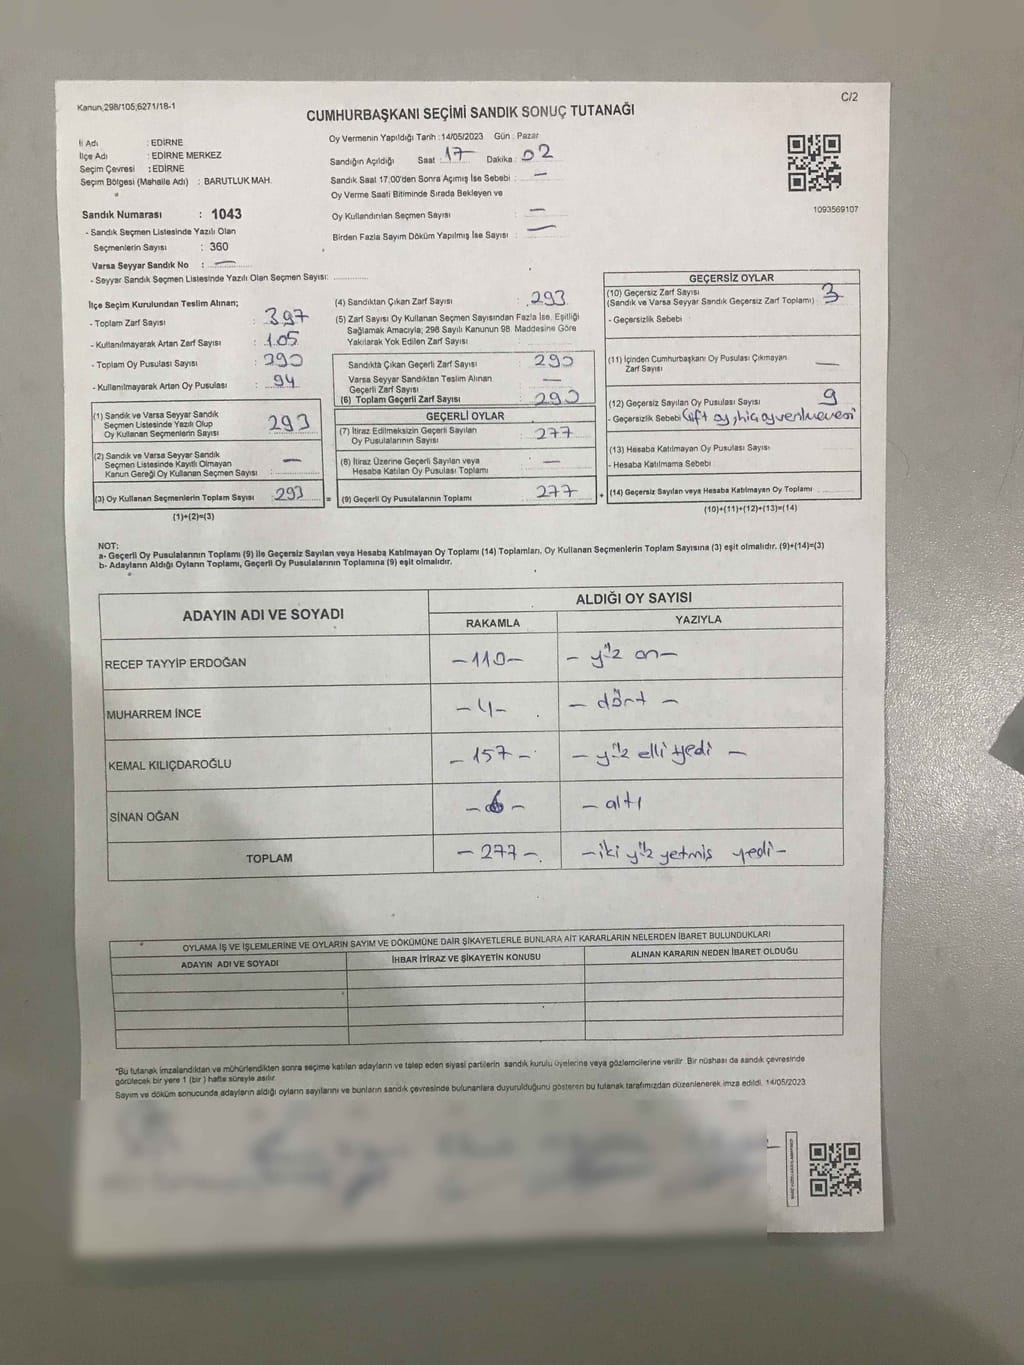 Kanun;298/105;6271/18-1
C/2
CUMHURBAŞKANI SEÇİMİ SANDIK SONUÇ TUTANAĞI
İl Adı : EDİRNE
İlçe Adı : EDİRNE MERKEZ
Seçim Çevresi : EDİRNE
Seçim Bölgesi (Mahalle Adı) : BARUTLUK MAH.
Sandık Numarası : 1043
- Sandık Seçmen Listesinde Yazılı Olan
Seçmenlerin Sayısı : 360
Varsa Seyyar Sandık No : —
- Seyyar Sandık Seçmen Listesinde Yazılı Olan Seçmen Sayısı:
Oy Vermenin Yapıldığı Tarih : 14/05/2023 Gün : Pazar
Sandığın Açıldığı Saat : 17 Dakika : 02
Sandık Saat 17:00'den Sonra Açımış İse Sebebi : —
Oy Verme Saati Bitiminde Sırada Bekleyen ve
Oy Kullandırılan Seçmen Sayısı : —
Birden Fazla Sayım Döküm Yapılmış İse Sayısı : —
1093569107
İlçe Seçim Kurulundan Teslim Alınan;
- Toplam Zarf Sayısı : 397
- Kullanılmayarak Artan Zarf Sayısı : 105
- Toplam Oy Pusulası Sayısı : 290
- Kullanılmayarak Artan Oy Pusulası : 94
(1) Sandık ve Varsa Seyyar Sandık
Seçmen Listesinde Yazılı Olup
Oy Kullanan Seçmenlerin Sayısı 293
(2) Sandık ve Varsa Seyyar Sandık
Seçmen Listesinde Kayıtlı Olmayan
Kanun Gereği Oy Kullanan Seçmen Sayısı : —
(3) Oy Kullanan Seçmenlerin Toplam Sayısı 293 =
(1)+(2)=(3)
(4) Sandıktan Çıkan Zarf Sayısı : 293
(5) Zarf Sayısı Oy Kullanan Seçmen Sayısından Fazla İse, Eşitliği
Sağlamak Amacıyla; 298 Sayılı Kanunun 98. Maddesine Göre
Yakılarak Yok Edilen Zarf Sayısı :
Sandıkta Çıkan Geçerli Zarf Sayısı : 290
Varsa Seyyar Sandıktan Teslim Alınan
Geçerli Zarf Sayısı : —
(6) Toplam Geçerli Zarf Sayısı : 290
GEÇERLİ OYLAR
(7) İtiraz Edilmeksizin Geçerli Sayılan
Oy Pusulalarının Sayısı : 277
(8) İtiraz Üzerine Geçerli Sayılan veya
Hesaba Katılan Oy Pusulası Toplamı : —
(9) Geçerli Oy Pusulalarının Toplamı : 277 +
GEÇERSİZ OYLAR
(10) Geçersiz Zarf Sayısı
(Sandık ve Varsa Seyyar Sandık Geçersiz Zarf Toplamı) : 3
- Geçersizlik Sebebi
(11) İçinden Cumhurbaşkanı Oy Pusulası Çıkmayan
Zarf Sayısı —
(12) Geçersiz Sayılan Oy Pusulası Sayısı 9
- Geçersizlik Sebebi Çift oy, hiç oy
(13) Hesaba Katılmayan Oy Pusulası Sayısı
- Hesaba Katılmama Sebebi
(14) Geçersiz Sayılan veya Hesaba Katılmayan Oy Toplamı :
(10)+(11)+(12)+(13)=(14)
NOT:
a- Geçerli Oy Pusulalarının Toplamı (9) ile Geçersiz Sayılan veya Hesaba Katılmayan Oy Toplamı (14) Toplamları, Oy Kullanan Seçmenlerin Toplam Sayısına (3) eşit olmalıdır. (9)+(14)=(3)
b- Adayların Aldığı Oyların Toplamı, Geçerli Oy Pusulalarının Toplamına (9) eşit olmalıdır.
ADAYIN ADI VE SOYADI
ALDIĞI OY SAYISI
RAKAMLA YAZIYLA
RECEP TAYYİP ERDOĞAN -110- - yüz on -
MUHARREM İNCE -4- - dört -
KEMAL KILIÇDAROĞLU -157- - yüz elli yedi -
SİNAN OĞAN -6- - altı
TOPLAM -277- - iki yüz yetmis yedi -
OYLAMA İŞ VE İŞLEMLERİNE VE OYLARIN SAYIM VE DÖKÜMÜNE DAİR ŞİKAYETLERLE BUNLARA AİT KARARLARIN NELERDEN İBARET BULUNDUKLARI
ADAYIN ADI VE SOYADI İHBAR İTİRAZ VE ŞİKAYETİN KONUSU ALINAN KARARIN NEDEN İBARET OLDUĞU
*Bu tutanak imzalandıktan ve mühürlendikten sonra seçime katılan adayların ve talep eden siyasi partilerin sandık kurulu üyelerine veya gözlemcilerine verilir. Bir nüshası da sandık çevresinde
görülecek bir yere 1 (bir) hafta süreyle asılır.
Sayım ve döküm sonucunda adayların aldığı oyların sayılarını ve bunların sandık çevresinde bulunanlara duyurulduğunu gösteren bu tutanak tarafımızdan düzenlenerek imza edildi. 14/05/2023